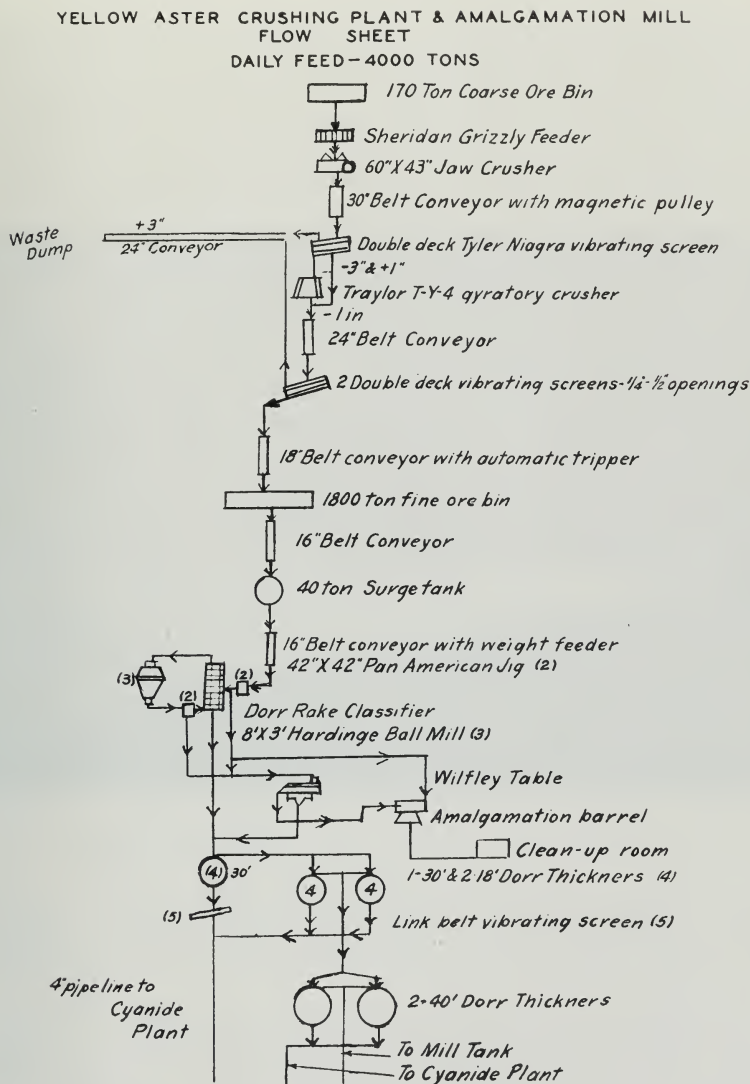 YELLOW ASTER CRUSHING PLANT & AMALGAMATION MILL
FLOW SHEET
DAILY FEED-4000 TONS
170 Ton Coarse Ore Bin
Sheridan Grizzly Feeder
60"X43" Jaw Crusher
30" Belt Conveyor with magnetic pulley
+3"
Waste
Dump
24" Conveyor
Double deck Tyler Niagra vibrating screen
-3" & +1"
Traylor T-Y-4 gyratory crusher
-1 in
24" Belt Conveyor
2 Double deck vibrating screens-1/4"-1/2" openings
18" Belt conveyor with automatic tripper
1800 ton fine ore bin
16" Belt Conveyor
40 ton Surge tank
16" Belt conveyor with weight feeder
42"X42" Pan American Jig (2)
(3)
(2)
(2)
Dorr Rake Classifier
8'X3' Hardinge Ball Mill (3)
Wilfley Table
Amalgamation barrel
Clean-up room
(4) 30'
1-30' & 2-18' Dorr Thickners (4)
4
4
(5)
Link belt vibrating screen (5)
4" pipeline to
Cyanide
Plant
2-40' Dorr Thickners
To Mill Tank
To Cyanide Plant